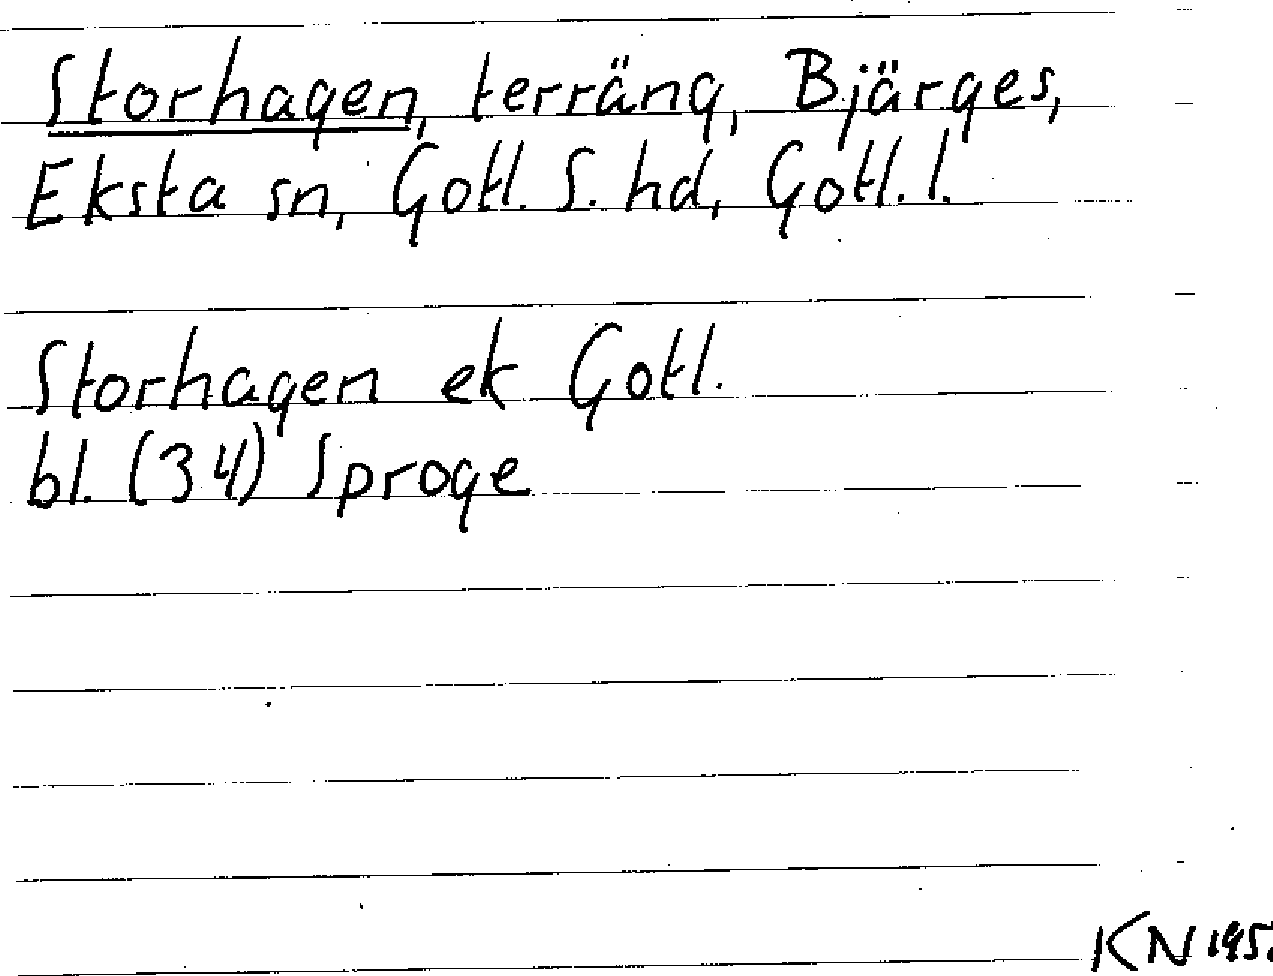 Storhagen, terräng, Bjärges,
Eksta sn, Gotl. S. hd, Gotl. l.
Storhagen ek Gotl.
bl. (34) Sproge
KN